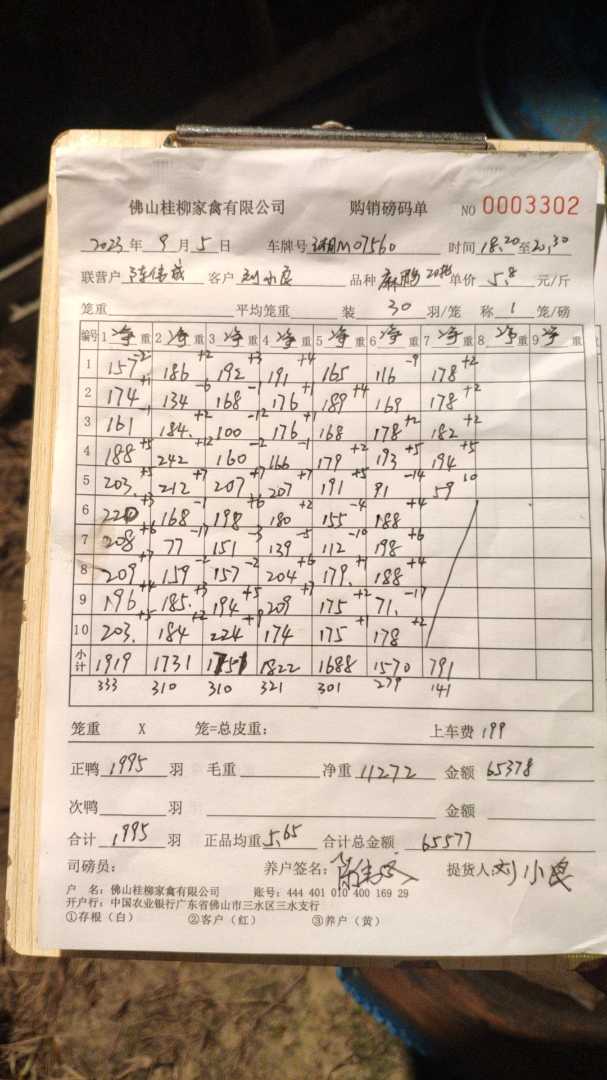 佛山桂柳家禽有限公司 购销磅码单 NO 0003302
2023年9月5日 车牌号 M07560 时间18.20至20.30
联营户 陈伟成 客户 刘小良 品种 麻鸭 单价 5.8 元/斤
笼重 平均笼重 装 30 羽/笼 称 1 笼/磅
编号 1 净重 2 净重 3 净重 4 净重 5 净重 6 净重 7 净重 8 净重 9 净重
1 157 -2 186 +2 192 +3 191 +4 165 116 -9 178 +2
2 174 +1 134 -6 168 -1 176 +1 189 +4 169 178 +2
3 161 -1 184 +2 100 -12 176 +1 168 178 +2 182 +2
4 188 +5 242 +12 160 -2 166 -1 179 +2 193 +5 194 +5
5 203 +5 212 +7 207 +7 207 +7 191 +5 91 -14 59 10
6 220 +3 168 -1 198 +6 180 +2 155 -4 188 +4
7 208 +6 77 -17 151 -3 139 -5 112 -10 198 +6
8 209 +7 159 -2 157 -2 204 +6 179 +1 188 +4
9 196 +4 185 +3 194 +5 209 +7 175 +2 71 -17
10 203 +5 184 +2 224 +9 174 175 +1 178 +2
小计 1919 1731 1751 1822 1688 1570 791
333 310 310 321 301 279 141
笼重 X 笼=总皮重: 上车费 199
正鸭 1995 羽 毛重 净重 11272 金额 65378
次鸭 羽 金额
合计 1995 羽 正品均重 5.65 合计总金额 65577
司磅员: 养户签名: 提货人: 刘小良
户 名: 佛山桂柳家禽有限公司 账号: 444 401 010 400 169 29
开户行: 中国农业银行广东省佛山市三水区三水支行
①存根(白) ②客户(红) ③养户(黄)